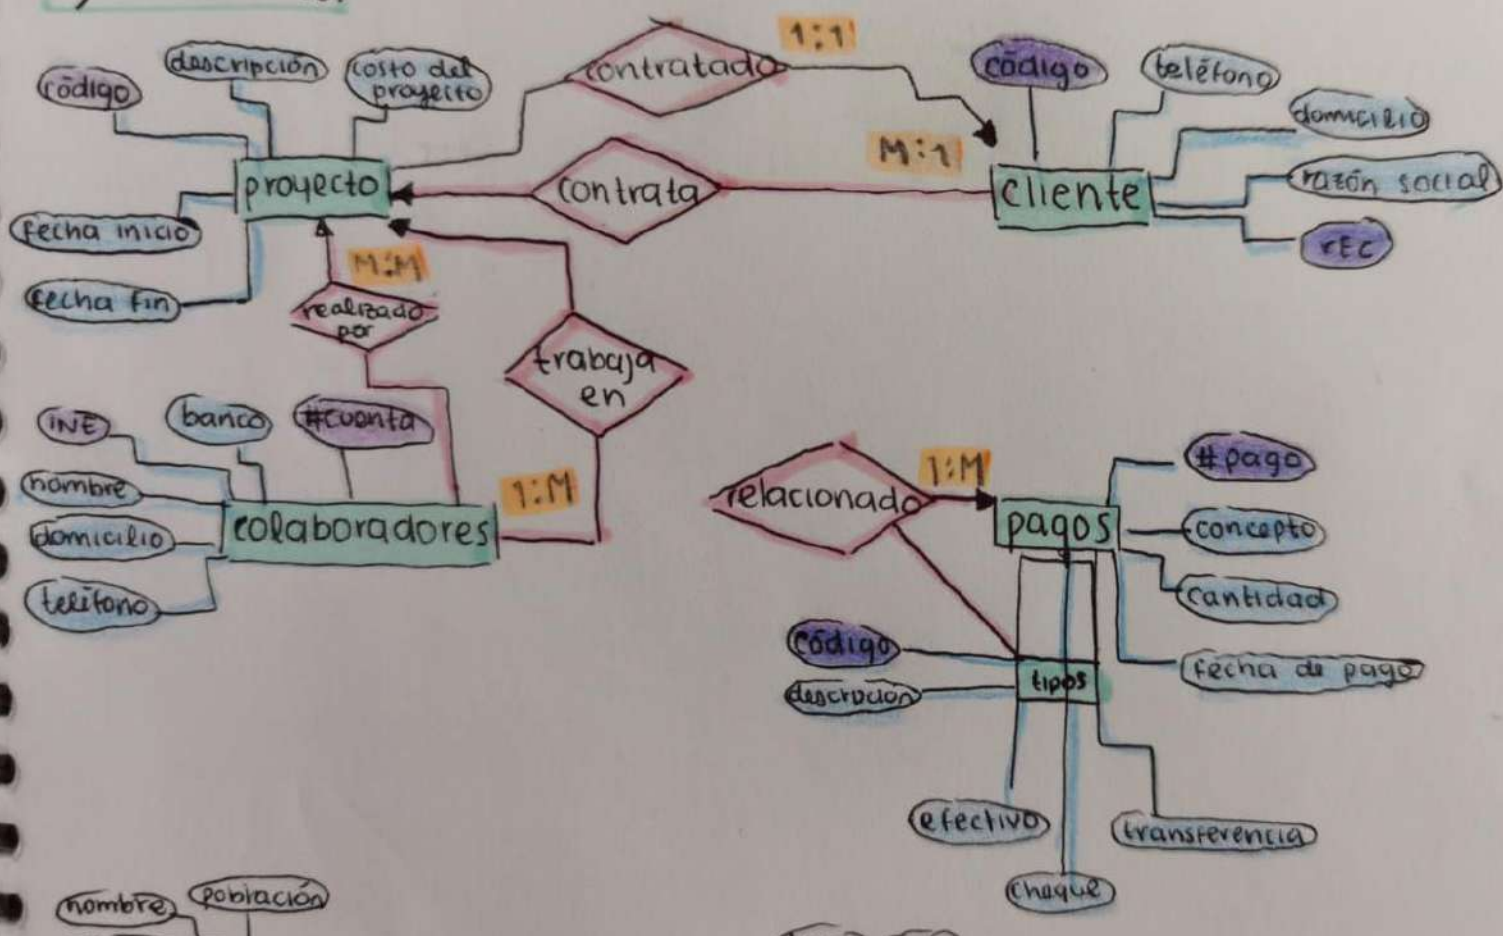 código
descripción
costo del
proyecto
contratado
1:1
código
teléfono
domicilio
razón social
rFC
proyecto
contrata
M:1
cliente
fecha inicio
fecha fin
M:M
realizado
por
trabaja
en
INE
banco
#cuenta
nombre
domicilio
teléfono
colaboradores
1:M
relacionado
1:M
pagos
#pago
concepto
cantidad
fecha de pago
código
tipos
efectivo
transferencia
cheque
nombre
población